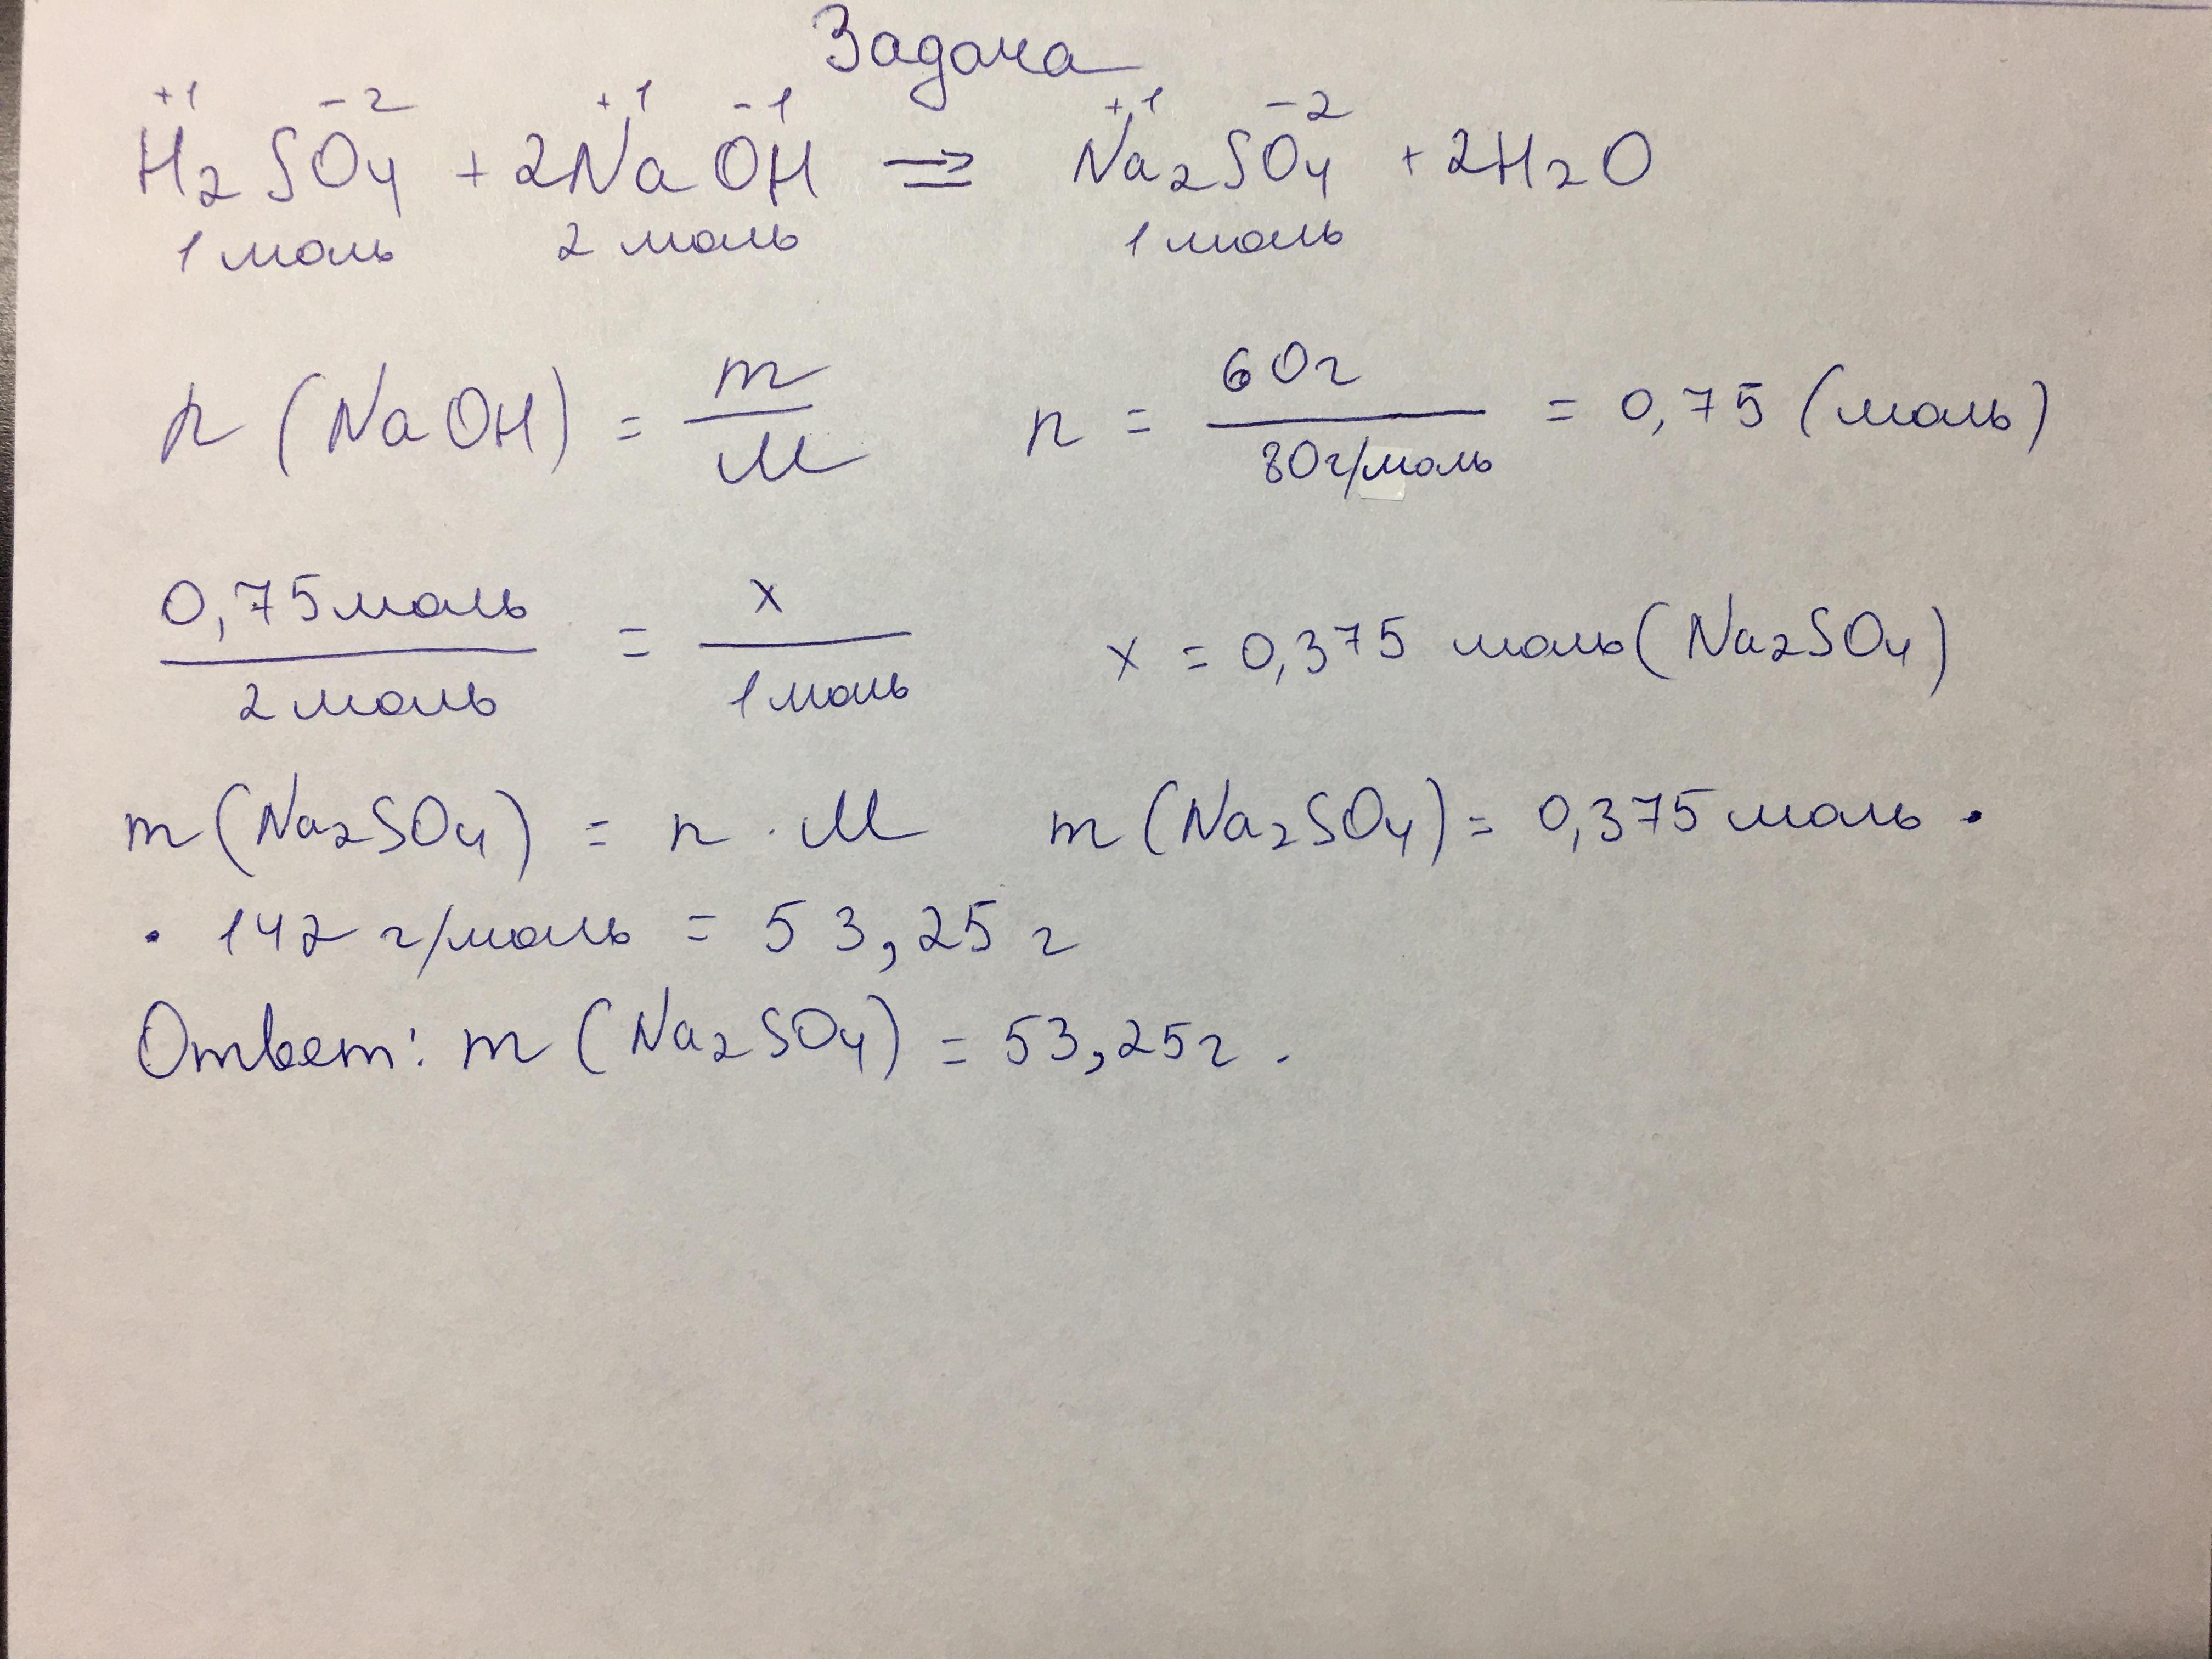 Задача
+1 -2 +1 -1 +1 -2
H₂SO₄ + 2NaOH ⇒ Na₂SO₄ + 2H₂O
1 моль 2 моль 1 моль
n (NaOH) = m/M n = 60г/80г/моль = 0,75 (моль)
0,75моль/2 моль = x/1 моль x = 0,375 моль (Na₂SO₄)
m (Na₂SO₄) = n · M m (Na₂SO₄) = 0,375 моль ·
· 142 г/моль = 53,25 г
Ответ: m (Na₂SO₄) = 53,25г.